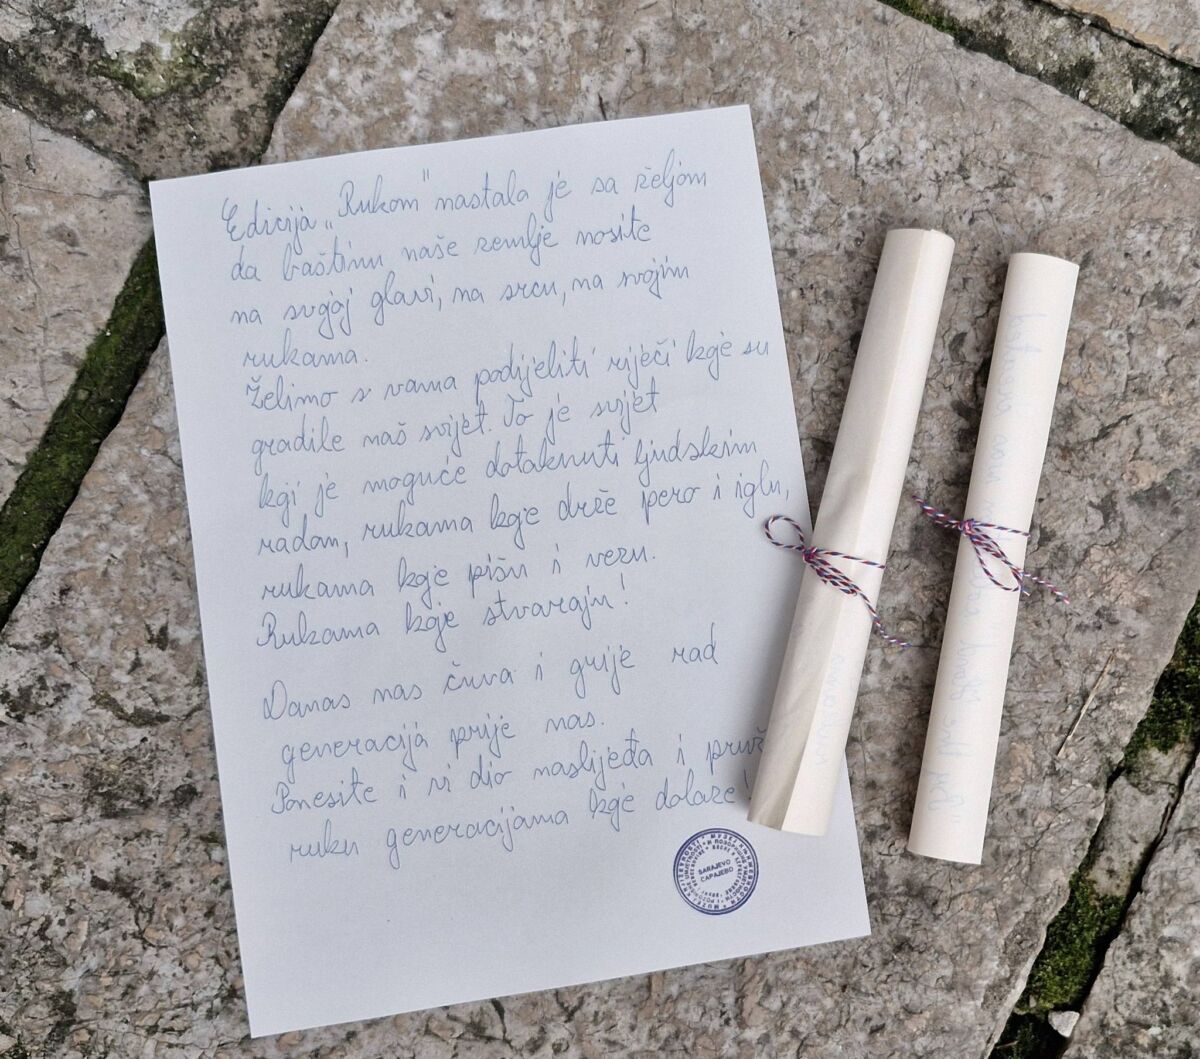 Edicija „Rukom" nastala je sa željom
da baštinu naše zemlje nosite
na svojoj glavi, na srcu, na svojim
rukama.
Želimo s vama podijeliti riječi koje su
gradile naš svijet. To je svijet
koji je moguće dotaknuti ljudskim
radom, rukama koje drže pero i iglu,
rukama koje pišu i vezu.
Rukama koje stvaraju!
Danas nas čuva i grije rad
generacija prije nas.
Ponesite i vi dio naslijeđa i pruž
ruku generacijama koje dolaze!
SARAJEVO
САРАЈЕВО